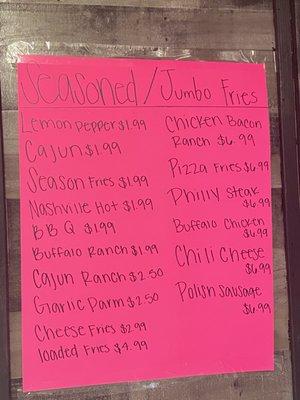 Seasoned / Jumbo Fries
Lemon Pepper $1.99
Cajun $1.99
Season Fries $1.99
Nashville Hot $1.99
BBQ $1.99
Buffalo Ranch $1.99
Cajun Ranch $2.50
Garlic Parm $2.50
Cheese Fries $2.99
loaded Fries $4.99
Chicken Bacon
Ranch $6.99
Pizza Fries $6.99
Philly Steak
$6.99
Buffalo Chicken
$6.99
Chili Cheese
$6.99
Polish Sausage
$6.99